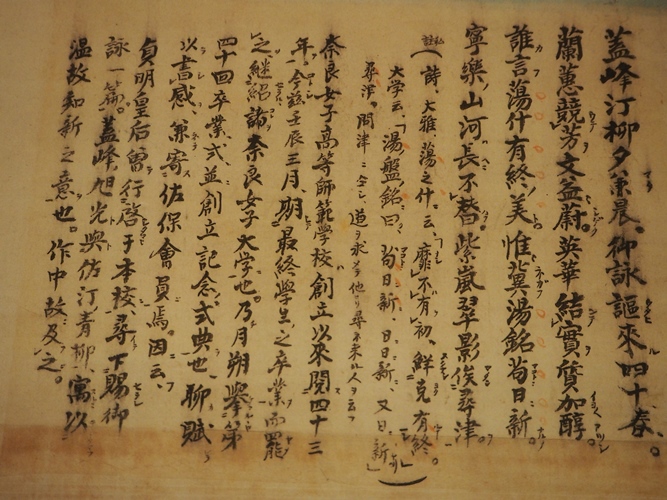 蓋峰汀柳夕兼晨。御詠謳來四十春。
蘭蕙競芳文益蔚。英華結實質加醇
誰言蕩什有終美。惟冀湯銘苟日新。
寧樂山河長不替。紫嵐翠影俟尋津。
（詩、大雅、蕩之什云、靡不有初、鮮克有終。
大学云「湯盤銘曰 苟日新、日日新、又日新」）
尋津。問津ニ仝シ、道ヲ求メテ他ヨリ尋ネ来ル人ヲ云フ
奈良女子高等師範学校創立以来閲四十三
年、今茲壬辰三月、期最終学生之卒業而罷
之継紹諸奈良女子大学也。乃月朔挙第
四十回卒業式並創立記念式典也、聊賦
以書感兼寄佐保會員焉。因云、
貞明皇后曽行啓于本校、尋下賜御
詠一篇。蓋峰旭光與佐汀青柳、寓以
温故知新之意也。作中故及之。